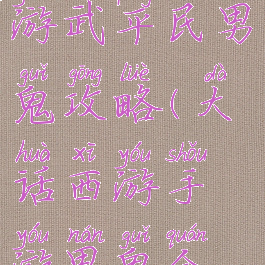 游武平民男
guǐ gōng lüè dà
鬼攻略(大
huà xī yóu shǒu
话西游手
yóu nán guǐ quán
游男鬼全